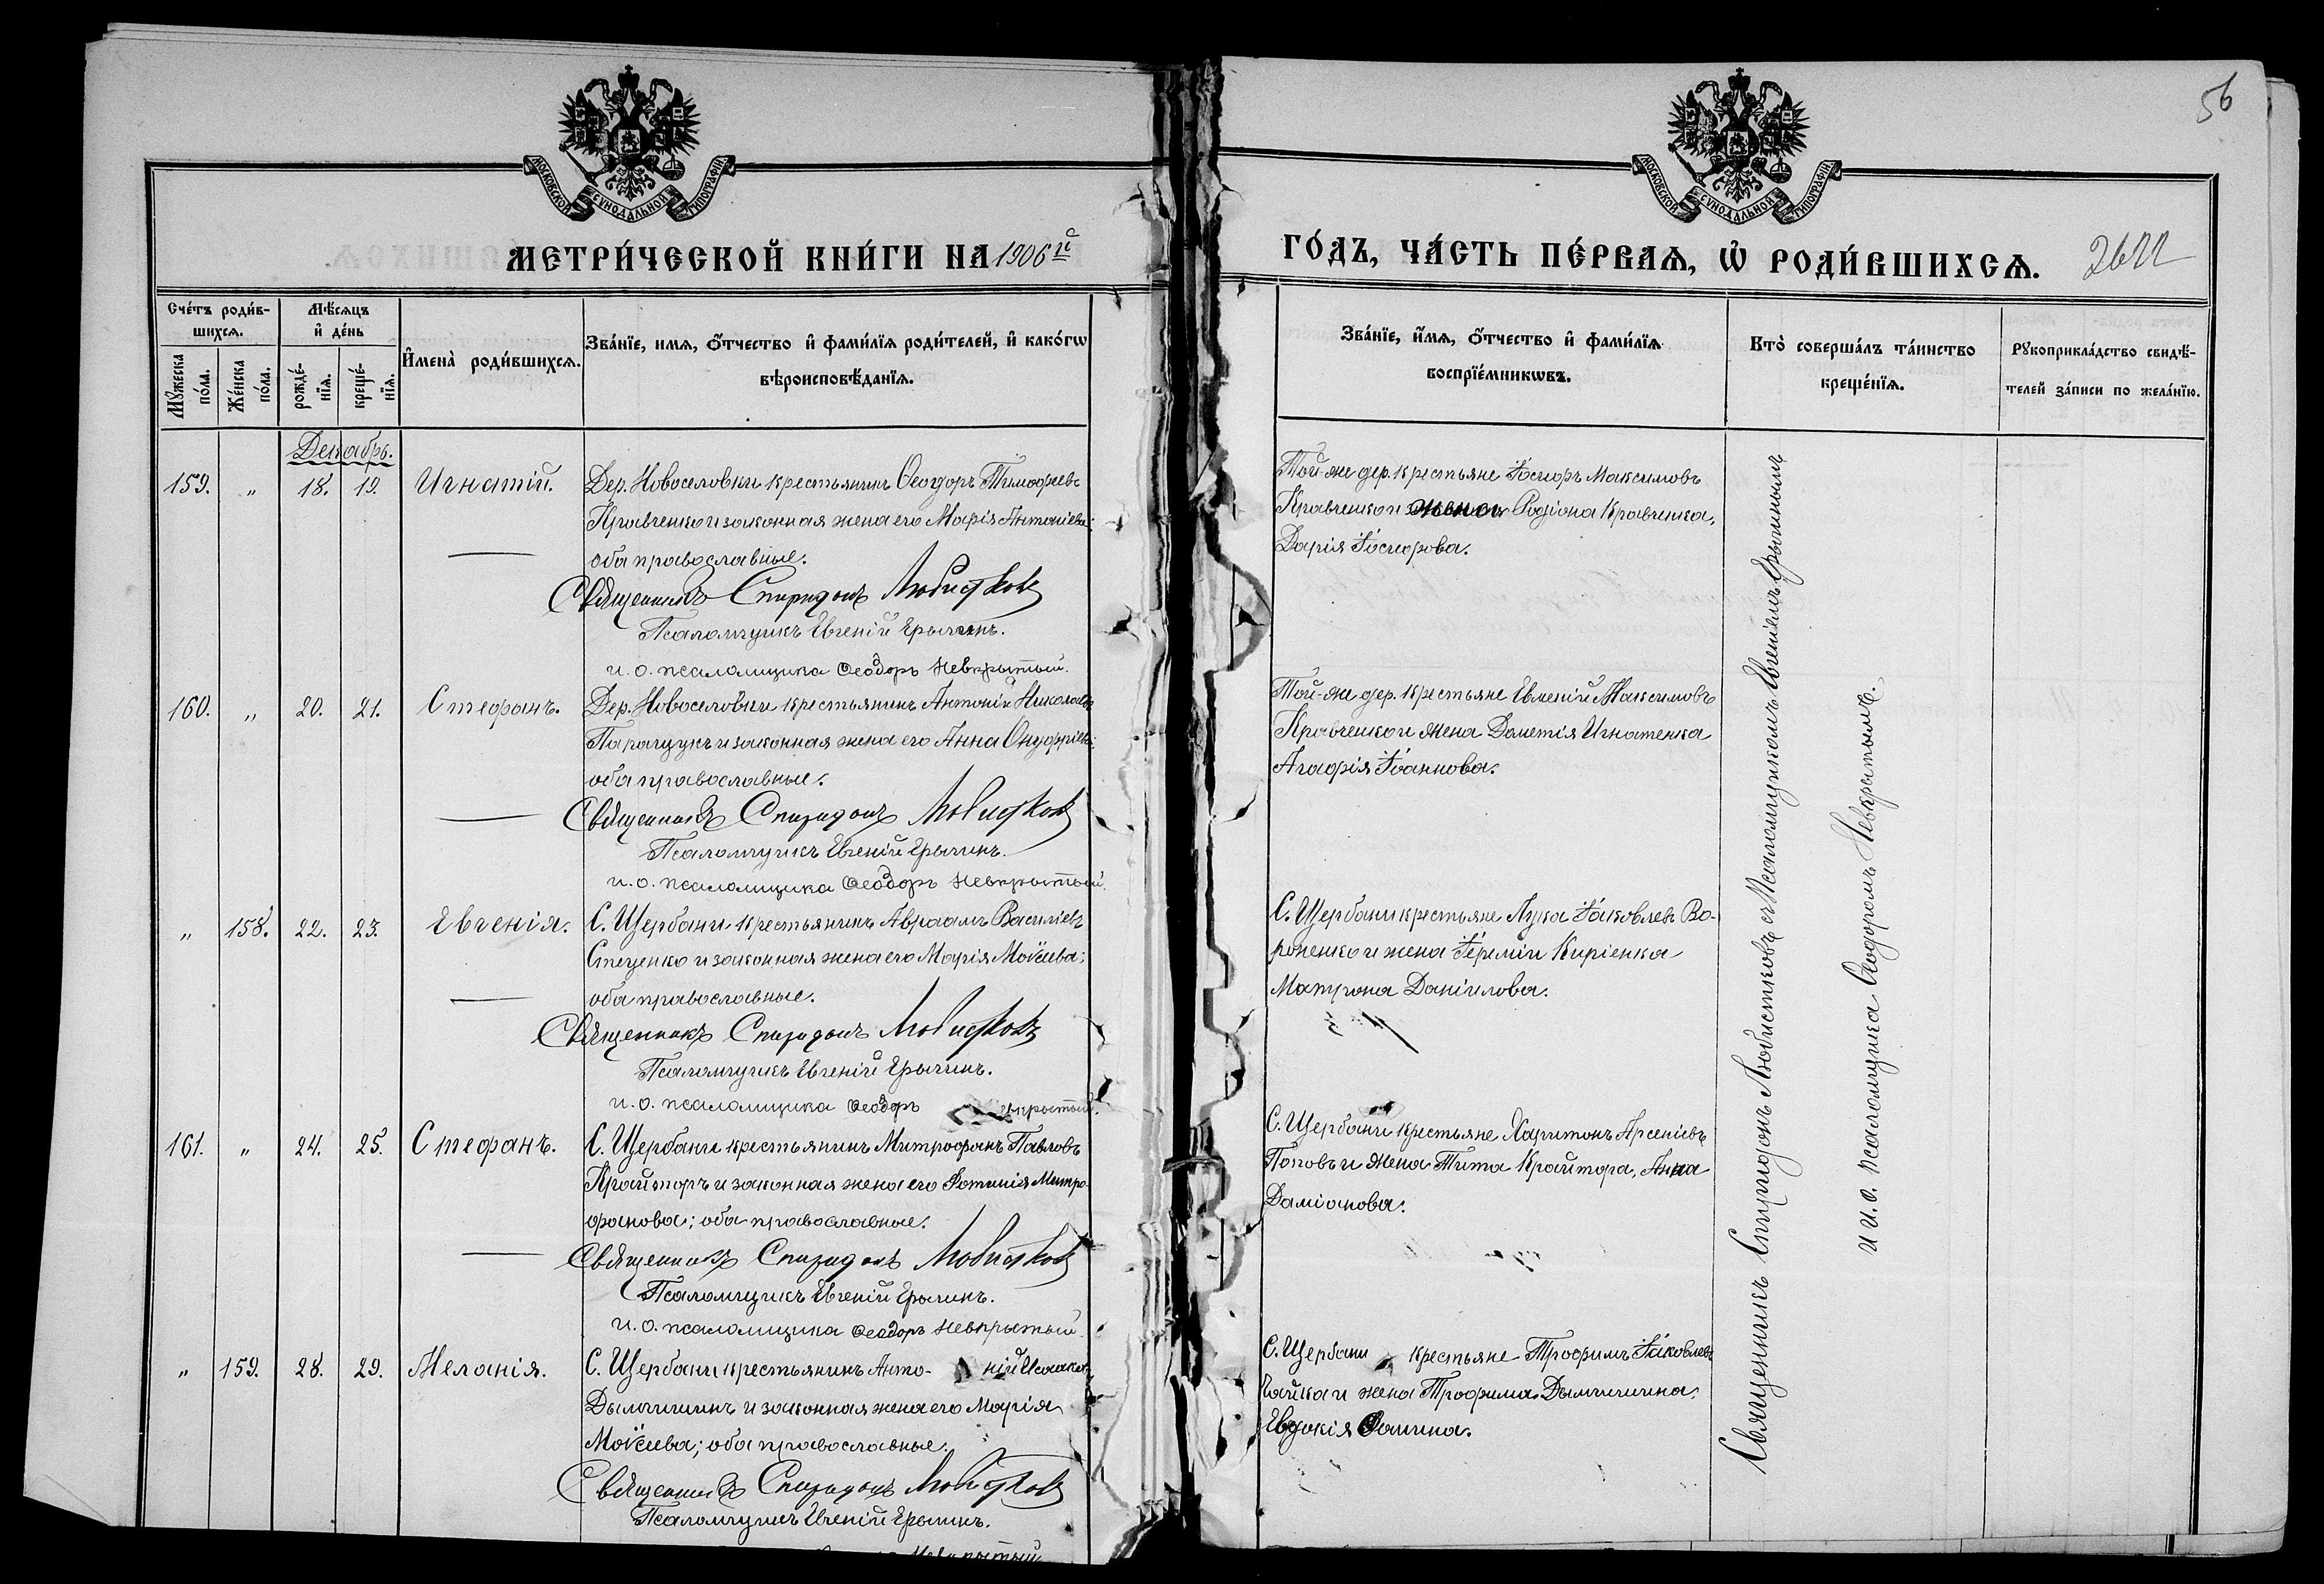 56
МОСКОВСКОЙ СѴНОДАЛЬНОЙ ТИПОГРАФІИ
МОСКОВСКОЙ СѴНОДАЛЬНОЙ ТИПОГРАФІИ
МЕТРИ́ЧЕСКОЙ КНИ́ГИ НА 1906й
ГО́ДЪ, ЧА́СТЬ ПЕ́РВАѦ, Ѽ РОДИ́ВШИХСѦ.
Сче́тъ роди́в-
шихсѧ.
Мꙋ́жеска по́ла.
Же́нска по́ла.
Мѣ́сѧцъ
и҆ де́нь
рожде́-
нїѧ.
креще́-
нїѧ.
И҆мена̀ роди́вшихсѧ.
Зва́нїе, имѧ, ѻ҆́тчество и҆ фами́лїѧ роди́телей, и҆ како́гѡ
вѣроисповѣ́данїѧ.
Зва́нїе, и҆́мѧ, ѻ҆́тчество и҆ фами́лїѧ
воспрїе́мникѡвъ.
Кто̀ соверша́лъ та́инство
креще́нїѧ.
Рꙋкоприкла́дство свидѣ́-
телей за́писи по жела́нїю.
Декабрь.
159. „ 18. 19. Игнатій. Дер. Новоселовки крестьянинъ Ѳеодоръ Тимоѳеевъ
Кравченко и законная жена его Марія Антоніева;
оба православные.
Священникъ Спиридонъ Любистковъ
Псаломщикъ Евгеній Ерыгинъ.
и. о. псаломщика Ѳеодоръ Невкрытый.
Той-же дер. крестьяне Іосифъ Максимовъ
Кравченко и жена Родіона Кравченка,
Дарія Іосифова.
160. „ 20. 21. Стефанъ. Дер. Новоселовки крестьянинъ Антоній Николаевъ
Паращукъ и законная жена его Анна Онуфріева;
оба православные.
Священникъ Спиридонъ Любистковъ
Псаломщикъ Евгеній Ерыгинъ.
и. о. псаломщика Ѳеодоръ Невкрытый.
Той-же дер. крестьяне Евменій Максимовъ
Кравченко и жена Дометія Игнатенка
Агафія Іоаннова.
„ 158. 22. 23. Евгенія. С. Щербани крестьянинъ Авраамъ Василіевъ
Стеценко и законная жена его Марія Моѵсеева;
оба православные.
Священникъ Спиридонъ Любистковъ
Псаломщикъ Евгеній Ерыгинъ.
и. о. псаломщика Ѳеодоръ Невкрытый.
С. Щербани крестьяне Лука Іаковлевъ Во-
роненко и жена Іереміи Киріенка
Матрона Даніилова.
161. „ 24. 25. Стефанъ. С. Щербани крестьянинъ Митрофанъ Павловъ
Крайторъ и законная жена его Фотинія Митро-
фанова; оба православные.
Священникъ Спиридонъ Любистковъ
Псаломщикъ Евгеній Ерыгинъ.
и. о. псаломщика Ѳеодоръ Невкрытый.
С. Щербани крестьяне Харитонъ Арсеніевъ
Поповъ и жена Тита Крайтора, Анна
Даміанова.
„ 159. 28. 29. Меланія. С. Щербани крестьянинъ Анто- ній Исааковъ
Дымчишинъ и законная жена его Марія
Моѵсеева; оба православные.
Священникъ Спиридонъ Любистковъ
Псаломщикъ Евгеній Ерыгинъ.
С. Щербани крестьяне Трофимъ Іаковлевъ
Гайка и жена Трофима Дымчишина,
Евдокія Ѳомина.
Священникъ Спиридонъ Любистковъ съ Псаломщикомъ Евгеніемъ Ерыгинымъ
и и. о. псаломщика Ѳеодоромъ Невкрытымъ.